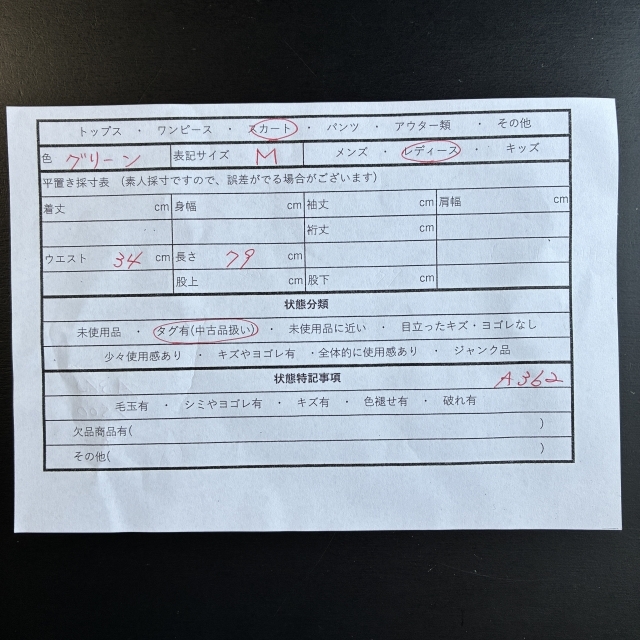 トップス ・ ワンピース ・ スカート ・ パンツ ・ アウター類 ・ その他
色 グリーン 表記サイズ M メンズ ・ レディース ・ キッズ
平置き採寸表 （素人採寸ですので、誤差がでる場合がございます）
着丈 cm 身幅 cm 袖丈 cm 肩幅 cm
裄丈 cm
ウエスト 34 cm 長さ 79 cm
股上 cm 股下 cm
状態分類
未使用品 ・ タグ有(中古品扱い) ・ 未使用品に近い ・ 目立ったキズ・ヨゴレなし
少々使用感あり ・ キズやヨゴレ有 ・全体的に使用感あり ・ ジャンク品
状態特記事項 A362
毛玉有 ・ シミやヨゴレ有 ・ キズ有 ・ 色褪せ有 ・ 破れ有
欠品商品有( )
その他( )